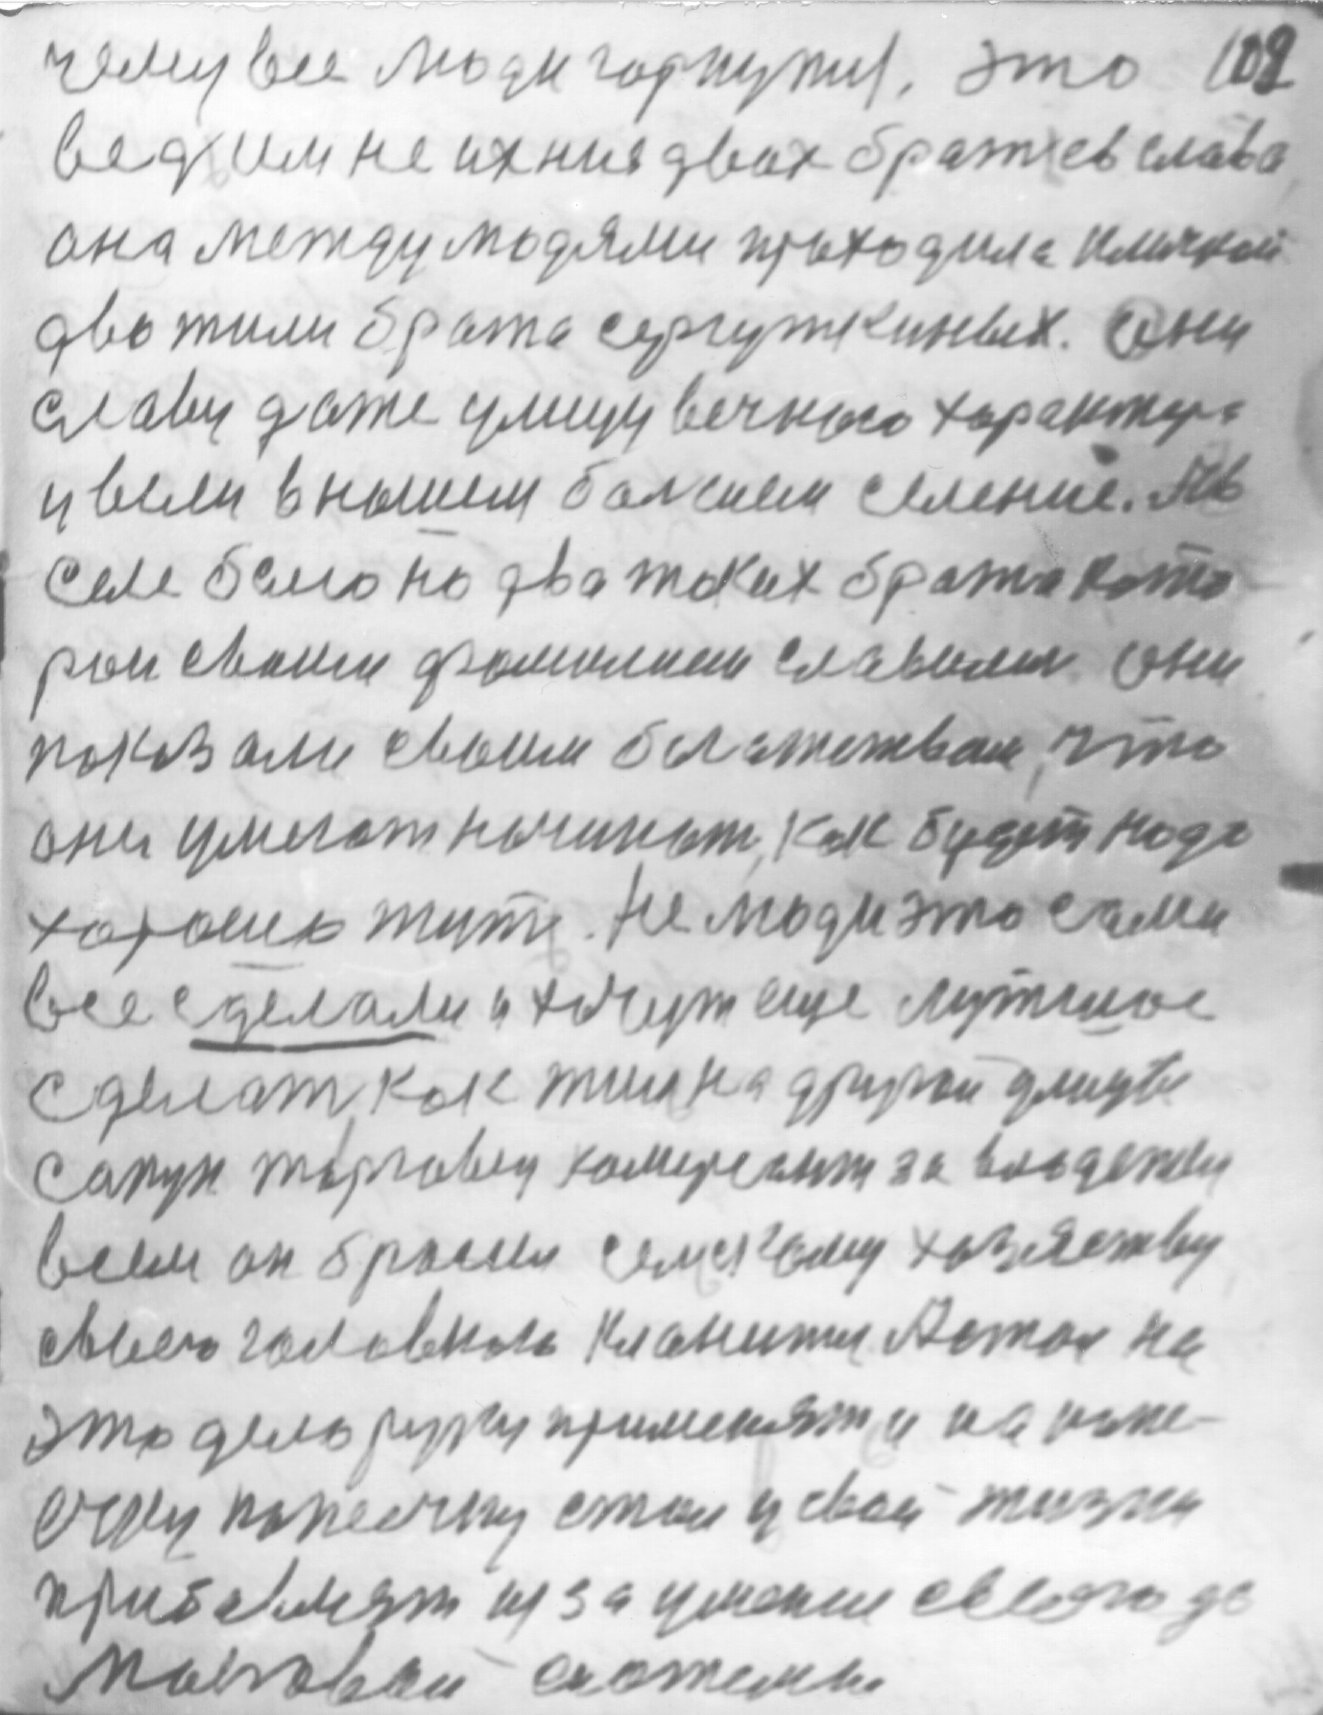 чему все люди горнутни. Это 109
вед им не ихния двох братев слава
она между модями проходила кличкой
дво жили брата сергуткиных. Они
славу даже улицу вечного характера
у вели в нашем большем селение. А в
селе было но два таких брата кото
рои своими фомилии славили они
показали своим богатством, что
они умеют начинат, как будто надо
хорошо жить. Не люди это сами
все сделали и хочут еще лутшое
сделат, как жил на другой улице
Сапун торговец комерсант за
всем он бросил селскому хозяйству
своего головного кланится. А стал на
это дело руку применят, и на
копеечку стал у свой жизни
прибавлят из за умения своего до
мостовой системы